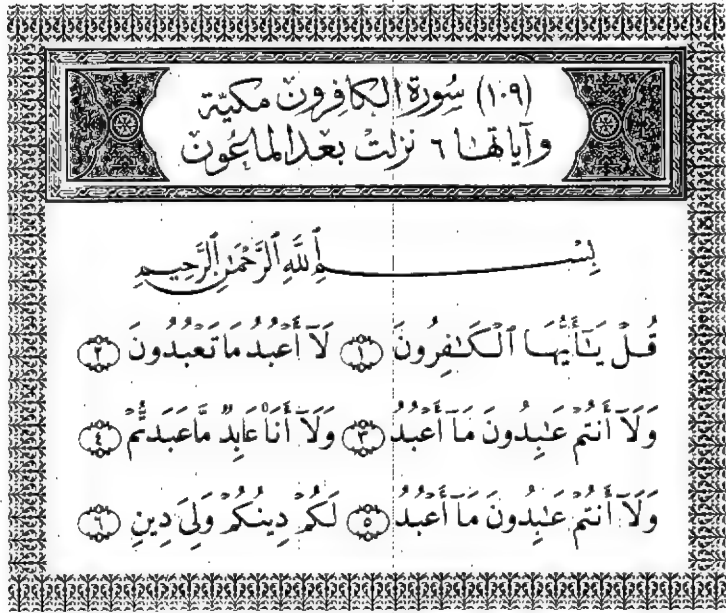 (١٠٩) سُورَة الكافِرون مكيّة
وآياتها ٦ نزلت بعد الماعُون
بِسْمِ ٱللَّهِ ٱلرَّحْمَٰنِ ٱلرَّحِيمِ
قُلْ يَٰٓأَيُّهَا ٱلْكَٰفِرُونَ ١ لَآ أَعْبُدُ مَا تَعْبُدُونَ ٢
وَلَآ أَنتُمْ عَٰبِدُونَ مَآ أَعْبُدُ ٣ وَلَآ أَنَا۠ عَابِدٌ مَّا عَبَدتُّمْ ٤
وَلَآ أَنتُمْ عَٰبِدُونَ مَآ أَعْبُدُ ٥ لَكُمْ دِينُكُمْ وَلِىَ دِينِ ٦